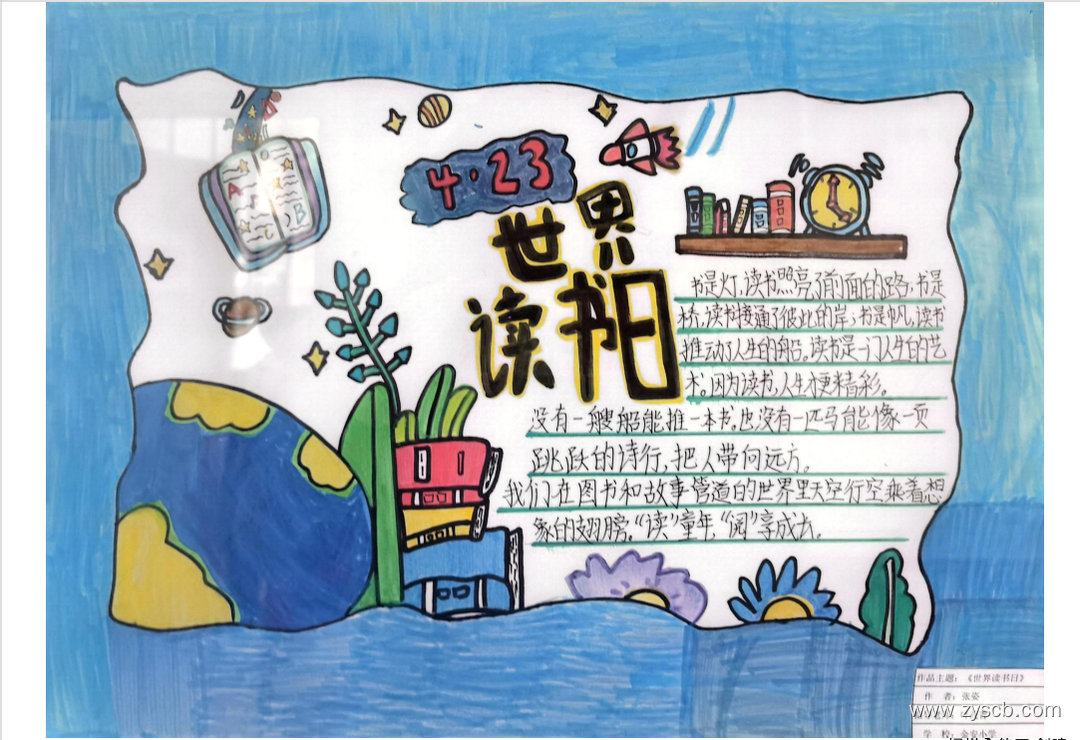 4·23
世界
读书日
书是灯,读书照亮了前面的路;书是
桥,读书接通了彼此的岸;书是帆,读书
推动了人生的船。读书是一门人生的艺
术。因为读书,人生才更精彩。
没有一艘船能推一本书。也没有一匹马能像一页
跳跃的诗行,把人带向远方。
我们在图书和故事管道的世界里天空行空乘着想
象的翅膀。“读”童年,“阅”享成长。
A
B
作品主题:《世界读书日》
作 者:张姿
www.zyscb.com
学 校:金安小学